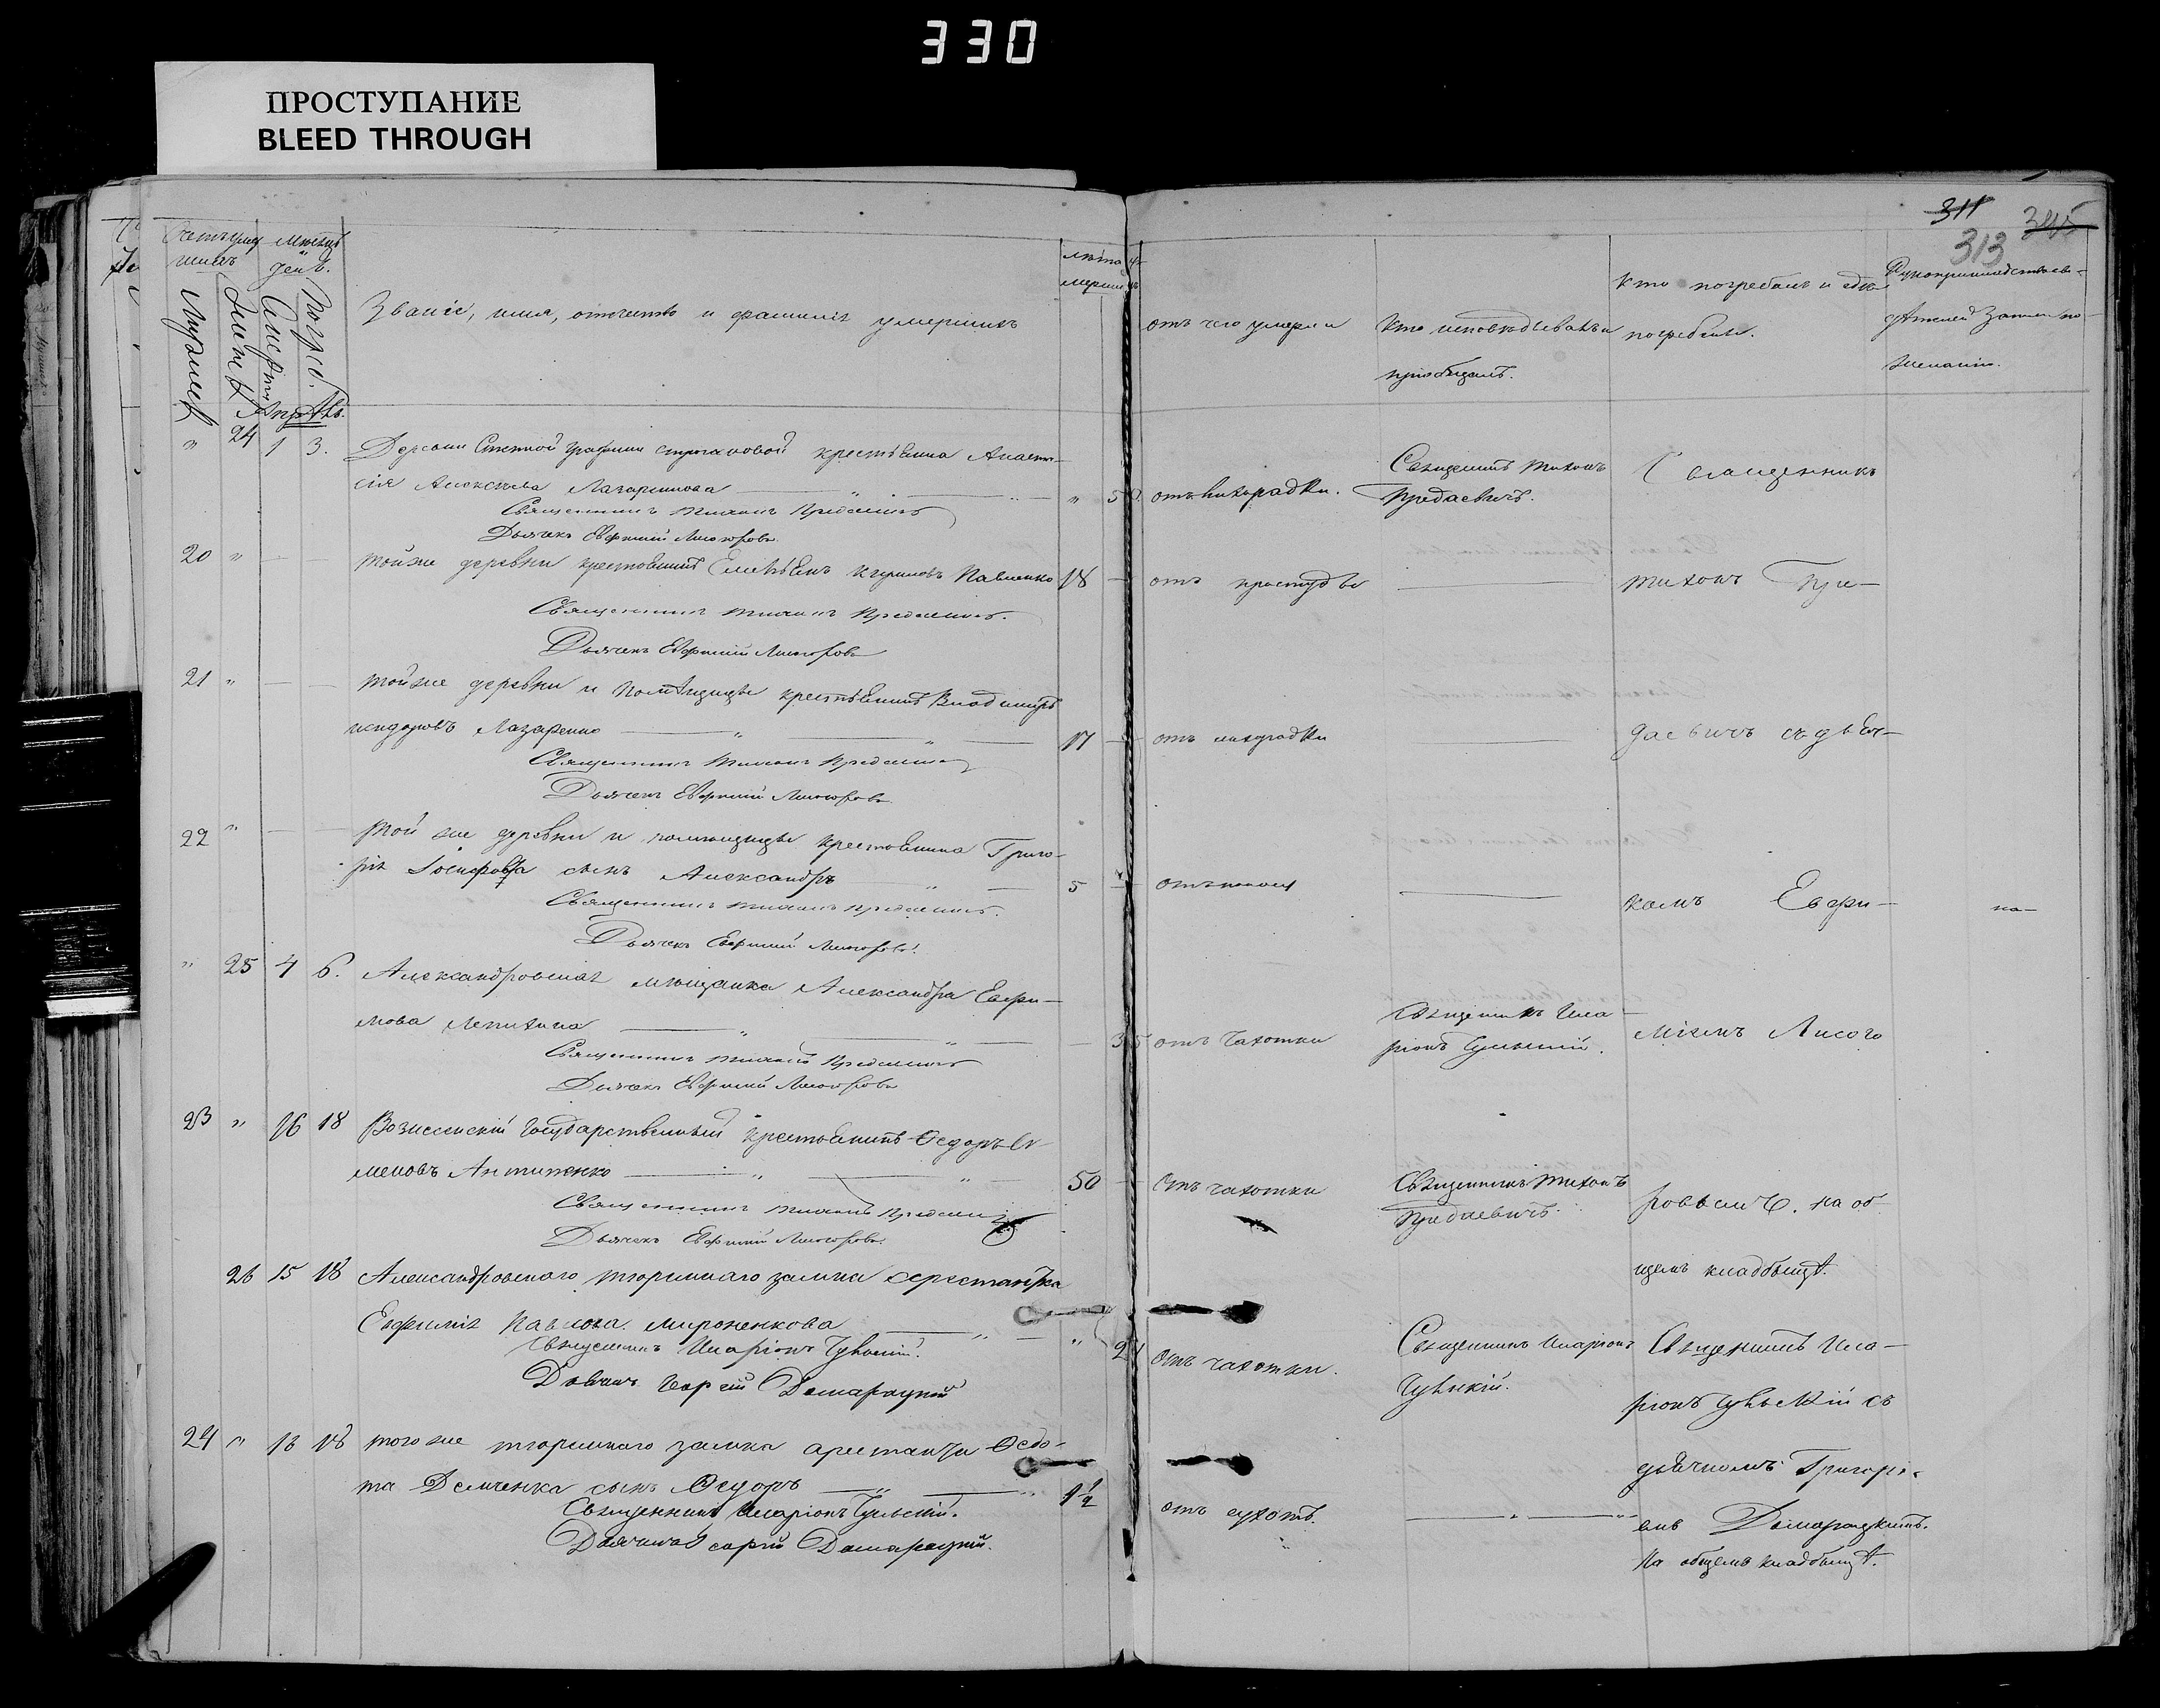 330
ПРОСТУПАНИЕ
BLEED THROUGH
311 345
313
Счетъ умер мѣсяцъ
шихъ день.
Мужеск Женск Смерти Погреб.
Званіе, имя, отчество и фамилія умершихъ
лѣта у-
мерших
отъ чего умерли
Кто исповѣдывалъ и
пріобщалъ.
Кто погребалъ и гдѣ
погребены.
Апрѣль.
" 24 1 3. Деревни Степной графини Строгановой крестьянка Анаста-
сія Алексѣева Лазаренкова " 50
отъ лихорадки.
Священникъ Тихонъ
Предаевичъ.
Священникъ
Священникъ Тихонъ Предаевичъ
Дьячекъ Евфимій Лисогоровъ
20 " тойже деревни крестьянинъ Емельянъ Кириловъ Павленко 18
отъ простуды
Тихонъ Пре-
Священникъ Тихонъ Предаевичъ.
Дьячекъ Евфимій Лисогоровъ
21 " тойже деревни и помѣщицы крестьянинъ Владиміръ
Исидоровъ Лазаренко 17
отъ лихорадки
даевичъ съ дьяч-
Священникъ Тихонъ Предаевичъ
Дьячекъ Евфимій Лисогоровъ
22 " Той же деревни и помѣщицы крестьянина Григо-
рія Іосифова сынъ Александръ 5
комъ Евфи-
Священникъ Тихонъ Предаевичъ.
Дьячекъ Евфимій Лисогоровъ
" 25 4 6. Александровская мѣщанка Александра Евфи-
мова Лепихина 35
отъ чахотки
Священникъ Ила-
ріонъ
міемъ Лисого
Священникъ Тихонъ Предаевичъ
Дьячекъ Евфимій Лисогоровъ
23 " 16 18 Вознесенскій Государственный крестьянинъ Ѳедоръ Се-
меновъ Антипенко 50
Отъ чахотки
Священникъ Тихонъ
Предаевичъ.
ровымъ. на об
щемъ кладбищѣ.
Священникъ Тихонъ Предаевичъ
Дьячекъ Евфимій Лисогоровъ.
26 15 18 Александровскаго тюремнаго замка арестантка
Евфимія Павлова Мироненкова " 21
отъ чахотки.
Священникъ Иларіонъ
Священникъ Ила-
ріонъ съ
Священникъ Иларіонъ
Дьячекъ Домарацкій
24 " 16 18 того же тюремнаго замка арестанта Ѳедо-
та Демченка сынъ Ѳедоръ 1½
отъ сухотъ.
дьячкомъ Григорі-
емъ Домарацкимъ.
На общемъ кладбищѣ.
Священникъ Иларіонъ
Дьячекъ Домарацкій.